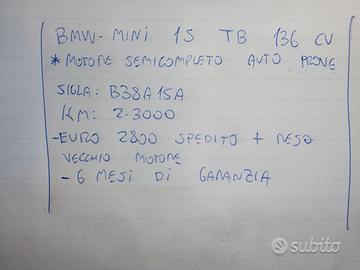 BMW-MINI 15 TB 136 CV
* MOTORE SEMICOMPLETO AUTO PROVE
SIGLA: B38A15A
KM: 2-3000
- EURO 2800 SPEDITO + RESO
VECCHIO MOTORE
- 6 MESI DI GARANZIA
subito